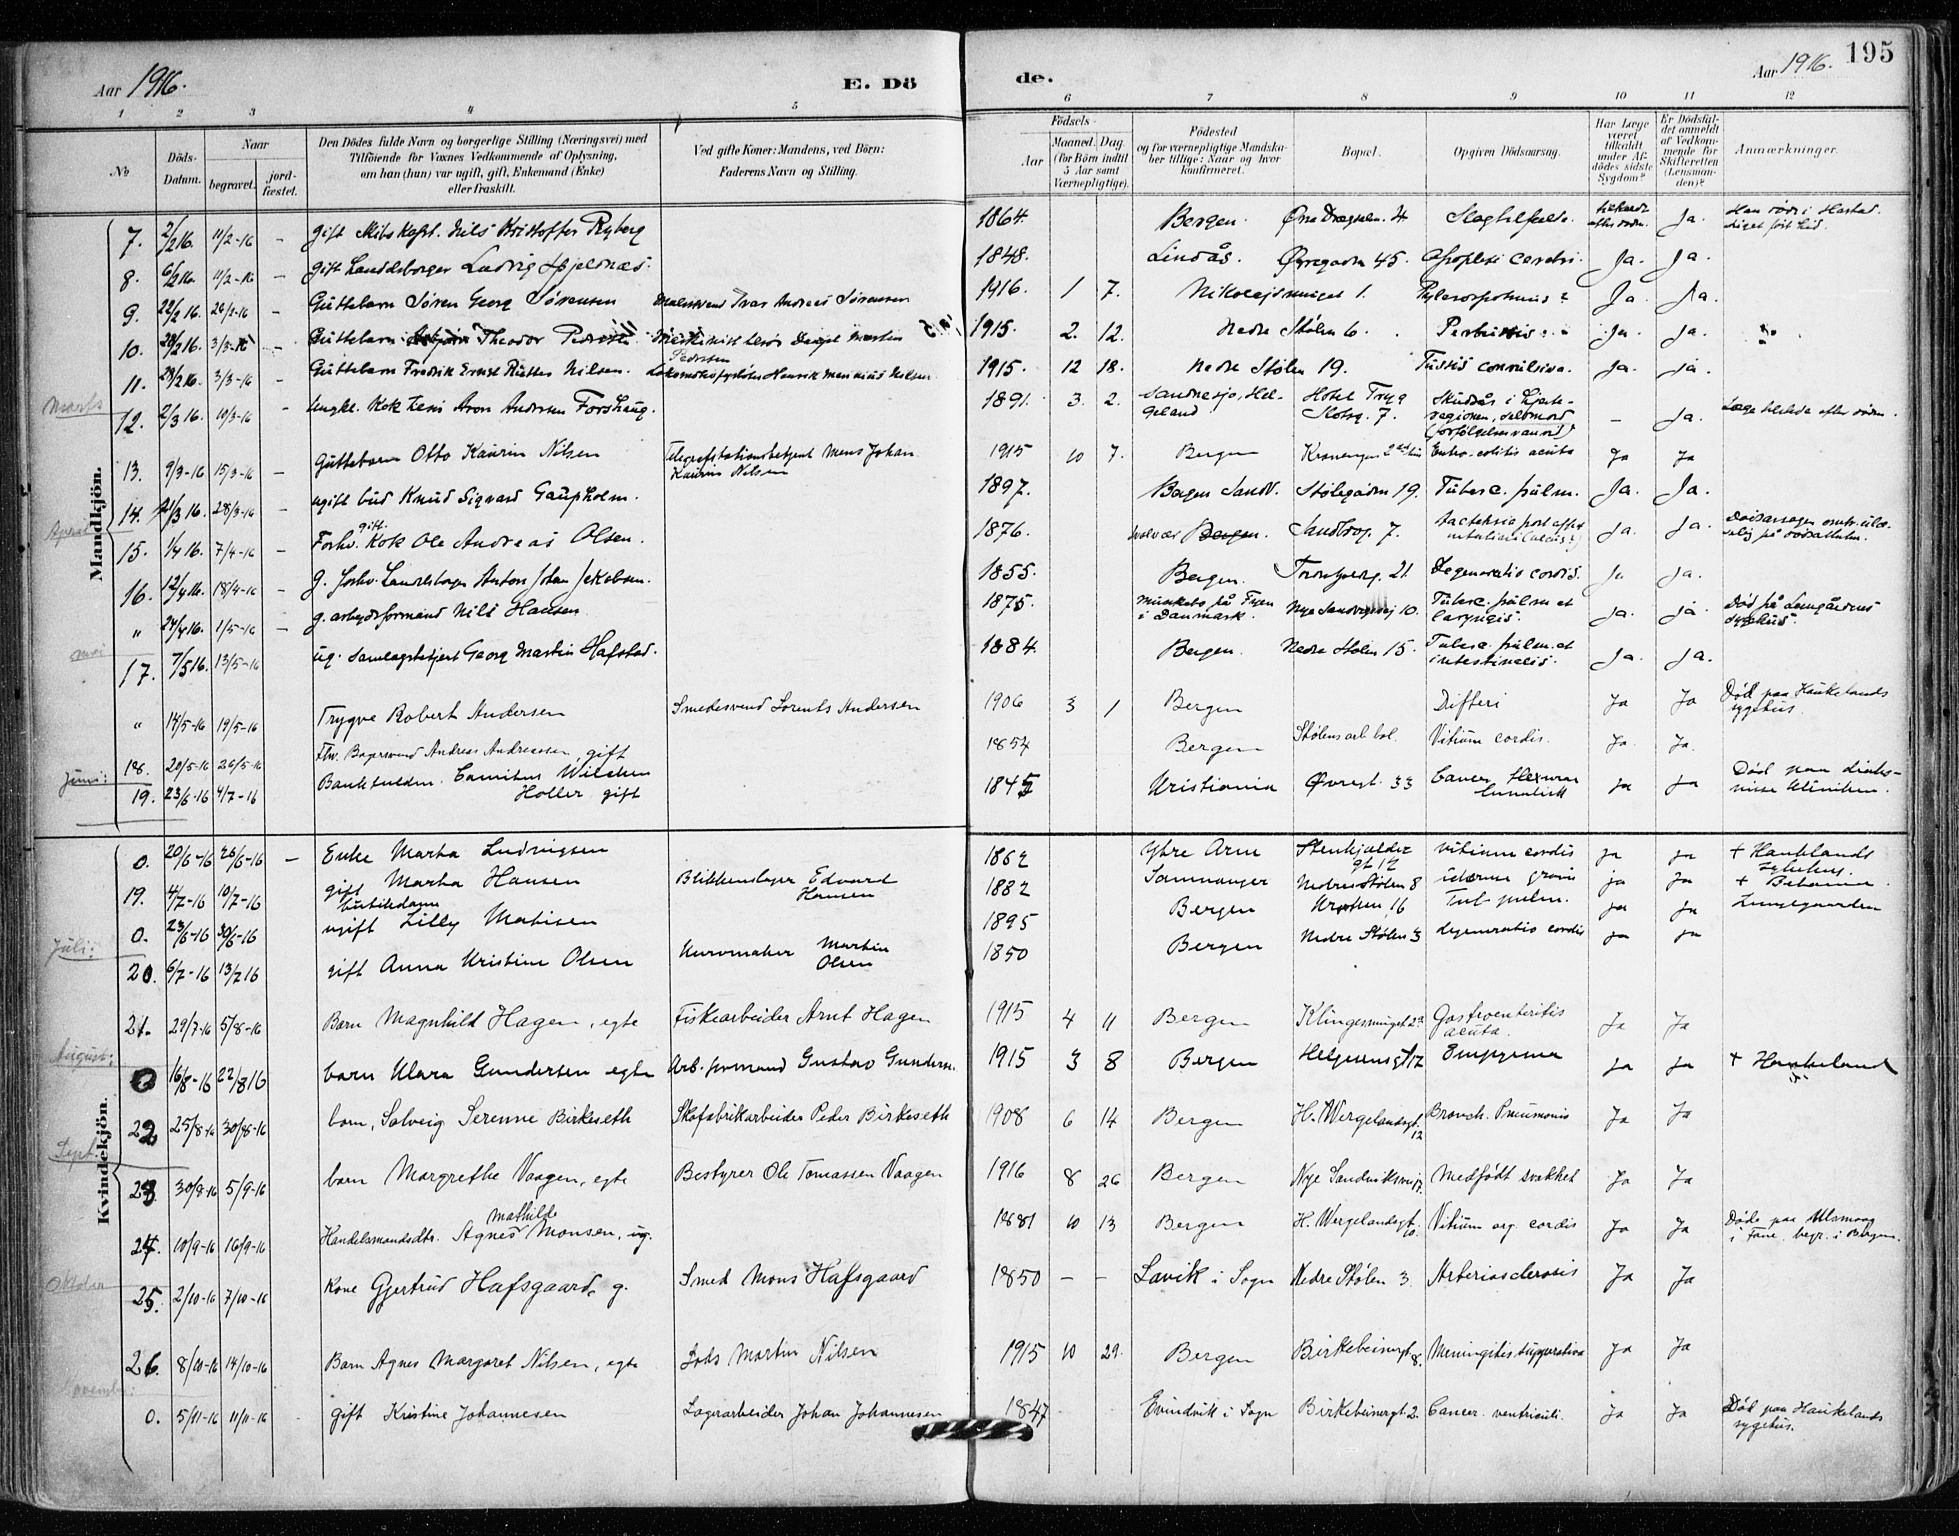 Aar 1916.
E. Dö
de.
Aar 1916.
195
1 2 3 4 5 6 7 8 9 10 11 12
No
Döds-Datum.
Naar
begravet.
jord-fæstet.
Den Dödes fulde Navn og borgerlige Stilling (Næringsvei) med
Tilföiende for Voxnes Vedkommende af Oplysning,
om han (hun) var ugift, gift, Enkemand (Enke)
eller fraskilt.
Ved gifte Koner: Mandens, ved Börn:
Faderens Navn og Stilling.
Födsels-
Aar
Maaned. Dag.
(for Börn indtil
5 Aar samt
Værnepligtige).
Födested
og for værnepligtige Mandska-
ber tillige: Naar og hvor
konfirmeret.
Bopæl.
Opgiven Dödsaarsag.
Har Læge
været
tilkaldt
under Af-
dödes sidste
Sygdom?
Er Dödsfal-
det anmeldt
af Vedkom-
mende for
Skifteretten
(Lensman-
den)?
Anmærkninger.
Mandkjön.
7. 2/2 16. 11/2-16 – gift Skibskapt. Nils Kristoffer Ryberg 1864. Bergen. Øvre Dræggalm. 4 Slagtilfælde. Ja. Han døde i Harstad.
8. 6/2 16. 11/2-16 – gift Ludvig Hjeldnæs. 1848. Lindås. Øvregaden 45. Apoplexi cerebri. Ja. Ja.
9. 22/2 16. 26/2-16 – Guttebarn Søren Georg Sørensen Malersvend Ivar Andreas Sørensen 1916. 1 7. Nikolejsmuget 1. Ja. Ja.
10. 3/3-16 – Guttebarn Theodor Pedersen Martin Pedersen 1915. 2. 12. Nedre Stølen 6. Ja. Ja.
11. 28/2 16. 3/3-16 – Guttebarn Fredrik Ernst Rutter Nilsen. Lokomotivfyrbøter Henrik Nilsen 1915. 12 18. Nedre Stølen 19. Tussis convulsiva. Ja. Ja.
Marts
12. 2/3 16. 10/3-16 – Aron Andersen Forshaug. 1891. 3. 2. Sandnessjø, Hel-
geland Hotel Tryg
Slotsg. 7. Skudsår i hjerte-
regionen, selvmord – Ja. Læge tilkaldt efter døden.
13. 9/3-16 15/3-16 – Guttebarn Otto Kaurin Nilsen Telegrafstationsbetjent Mons Johan
Kaurin Nilsen 1915 10 7. Bergen Entro-colitis acuta Ja Ja
14. 21/3 16. 28/3-16 – ugift bud Knud Sigvard Gaupholm. 1897. Bergen Sandv. Stølegaden 19. Tuberc. pulm. Ja. Ja.
April
15. 1/4 16. 7/4-16 – Forhv. gift. Kok Ole Andreas Olsen. 1876. Bergen. Sandbrog. 7. Ja. Ja.
16. 12/4 16. 18/4-16 – g. forhv. Anton Johan Jakobsen. 1855. Bergen. 21 Degeneratio cordis. Ja Ja.
" 24/4 16. 1/5-16 – g. arbeidsformand Nils Hansen 1875. Munkebo på Fyen
i Danmark. Nye Sandviksvej 10. Tuberc. pulm et
laryngis. Ja. Ja Død på Lungårdens
sygehus.
mai
17. 7/5 16. 13/5-16 ug. samlagsbetjent Georg Martin Hafstad. 1884. Bergen. Nedre Stølen 15. Tuberc. pulm. et
intestinalis. Ja. Ja.
" 14/5-16 19/5-16 Trygve Robert Andersen Smedesvend Lorents Andersen 1906 3 1 Bergen Difteri Ja Ja Død paa Haukelands
sygehus.
18. 20/5-16 26/5-16 Fhv. Bagersvend Andreas Andreassen, gift 1854 Bergen Stølens arb bol. Vitium cordis. Ja Ja.
Juni:
19. 23/6-16 4/7-16 Bankfuldm. Camitus Wilhelm
Holler, gift 1845 Kristiania Øvregt. 33 Cancer flexurae Ja Ja Død paa diako-
nisse klinikken.
Kvindekjön.
0. 20/6-16 26/6-16 – Enke Marta Ludvigsen 1862 Ytre Arne Stenkjelder
gt 12 Vitium cordis Ja Ja + Hauklands
sykehus.
19. 4/7-16 10/7-16 gift Marta Hansen Blikkenslager Edvard
Hansen 1882 Samnanger Nedre Stølen 8 Ja Ja + Betania
0. 23/6-16 30/6-16 ugift Lilly Matisen 1895 Bergen 16 Tub pulm. Ja Ja Lungegaarden
Juli:
20. 6/7-16 13/7 16 gift Anna Kristine Olsen Kurvmaker Martin
Olsen 1850 Bergen Nedre Stølen 3 degeneratio cordis Ja Ja
21. 29/7-16 5/8-16 Barn Magnhild Hagen, egte Fiskearbeider Arnt Hagen 1915 4 11 Bergen Klingesmuget 2a Gastroenteritis
acuta. Ja Ja
August:
0 16/8-16 22/8 16 barn Klara Gundersen egte Arb. formand Gustav Gunders. 1915 3 8 Bergen Helgesensgt 17 Empyema Ja Ja + Haukeland
22 25/8-16 30/8-16 barn, Solveig Serenne Birkeseth Skofabrikarbeider Peder Birkeseth 1908 6 14 Bergen H. Wergelandsgt.
12 Bronch. Pneumonie Ja Ja
Sept.
23 30/8-16 5/9-16 barn Margrethe Vaagen, egte Bestyrer Ole Tomassen Vaagen 1916 8 26 Bergen Nye Sandviksvei Medfødt svakhet Ja Ja
24. 10/9-16 16/9-16 Handelsmandsdtr. Agnes Mathilde Monsen, ug. 1881 10 13 Bergen H. Wergelandsgt. 10. Vitium org. cordis Ja Ja Døde paa
i Fane, begr. i Bergen.
Oktober
25. 2/10-16 7/10-16 Kone Gjertrud Hafsgaard, g. Smed Mons Hafsgaard 1850 – – Lavik i Sogn Nedre Stølen 3. Arteriosclerosis Ja Ja
26. 8/10-16 14/10-16 Barn Agnes Margaret Nilsen, egte Lods Martin Nilsen 1915 10 29. Bergen Birkebeinergt 8. Meningitis supperativa Ja Ja
November:
0. 5/11-16 11/11-16 gift Kristine Johannesen Lagerarbeider Johan Johannesen 1847 Evindvik i Sogn Birkebeinergt. 2. Cancer ventriculi. Ja Ja Død paa Haukelands
sygehus.